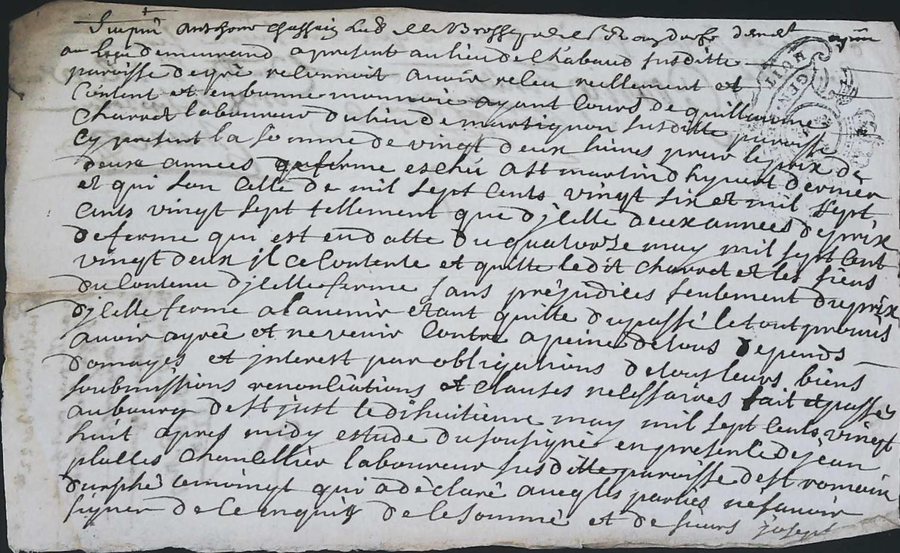 au lieu de murand a present au lieu de Chabaud susditte
paroisse deyré reconnoit avoir receu reellement et
Contant et en bonne monnoie ayant Cours de guillaume
Charret laboureur du lieu de martignon susditte paroisse
Cy present la somme de vingt deux livres pour le prix de
deux années de ferme escheü a St martin d'hyver dernier
et qui son Celle de mil sept Cents vingt six et mil sept
Cents vingt sept tellement que dycelle deux années de prix
de ferme qui est en datte du quatorze may mil sept Cent
vingt deux il ce Contente et quitte ledit Charret et les siens
du Contenu dycelle ferme sans prejudices seulement du prix
dycelle ferme a l'avenir etant quitte du passé le tout promis
avoir agreé et ne venir Contre a peine de tous depends
domages et interest par obligations de tout leurs biens
soubmissions renonciations et Clauses necessaires fait et passé
au bourg de St just le dishuitieme may mil sept Cents vingt
huit apres midy estude du sousigné en presence de jean
Chancellier laboureur susditte paroisse de St romain
durphé temoingt qui a declaré avec les parties ne savoir
signer de ce enquis de le sommé et de sieurs joseph